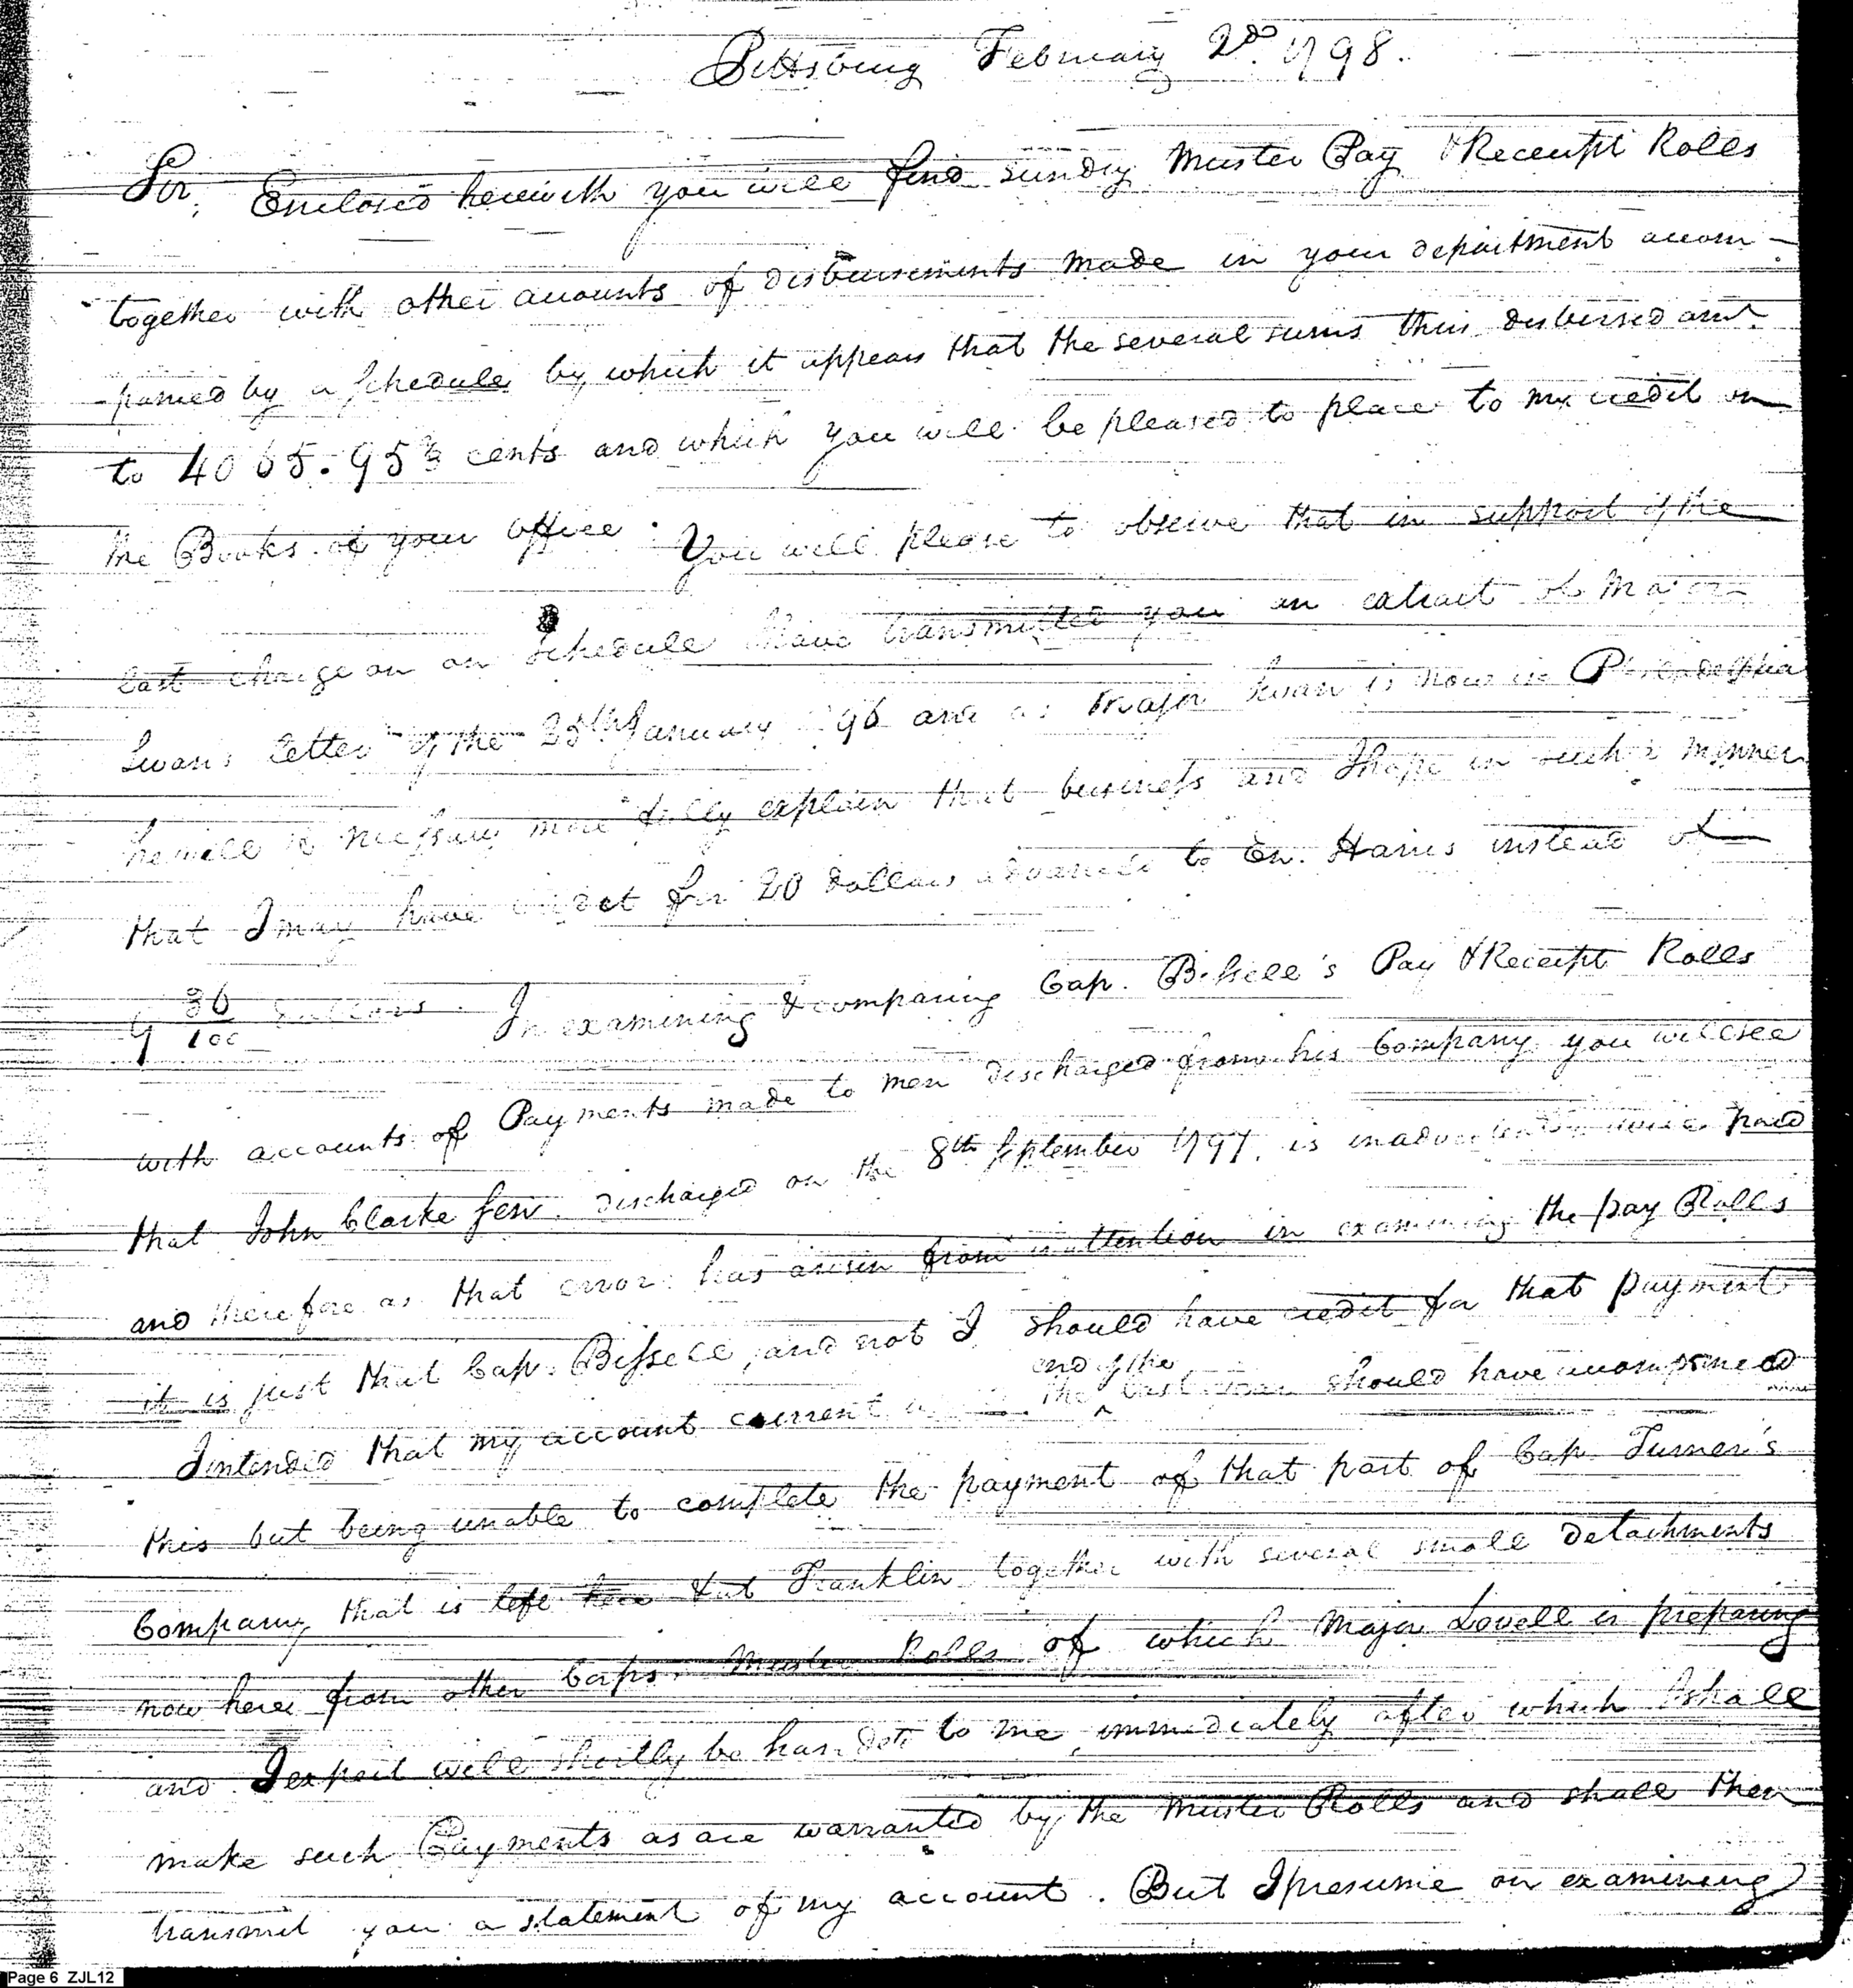 Pittsburg February 2d. 1798.
Sir, Enclosed herewith you will find sundry Muster Pay & Receipt Rolls
together with other accounts of disbursements made in your department accom-
-panied by a schedule by which it appears that the several sums thus disbursed amt.
to 4065.95 cents and which you will be pleased to place to my credit on
the Books of your office. You will please to observe that in support of the
last charge on an Schedule I have transmitted you an extract of Major
Swan's letter of the 25th January 96 and as Major Swan is now in Philadelphia
he will if necessary more fully explain that business and I hope in such a manner
that I may have credit for 20 dollars advanced to En. Harris instead of
9 36/100 dollars. In examining & comparing Cap. Bissell's Pay & Receipt Rolls
with accounts of Payments made to men discharged from his Company you will see
that John Clarke Senr. discharged on the 8th September 1797, is inadvertently twice paid
and therefore as that error has arisen from inattention in examining the pay Rolls
it is just that Cap. Bissell, and not I should have credit for that payment
I intended that my account current the end of the last year should have accompanied
this but being unable to complete the payment of that part of Cap Turner's
Company that is left here & at Franklin together with several small detachments
now here from other Corps. Muster Rolls of which Major Lovell is preparing
and I expect will shortly be handed to me, immediately after which I shall
make such Payments as are warranted by the Muster Rolls and shall then
transmit you a statement of my account. But I presume on examining
Page 6 ZJL12